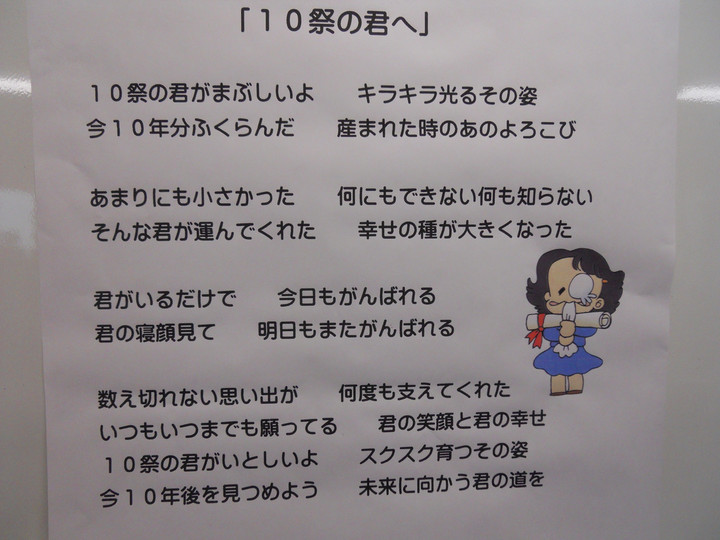 「１０祭の君へ」
１０祭の君がまぶしいよ　　キラキラ光るその姿
今１０年分ふくらんだ　　産まれた時のあのよろこび
あまりにも小さかった　　何にもできない何も知らない
そんな君が運んでくれた　　幸せの種が大きくなった
君がいるだけで　　今日もがんばれる
君の寝顔見て　　明日もまたがんばれる
数え切れない思い出が　　何度も支えてくれた
いつもいつまでも願ってる　　君の笑顔と君の幸せ
１０祭の君がいとしいよ　　スクスク育つその姿
今１０年後を見つめよう　　未来に向かう君の道を